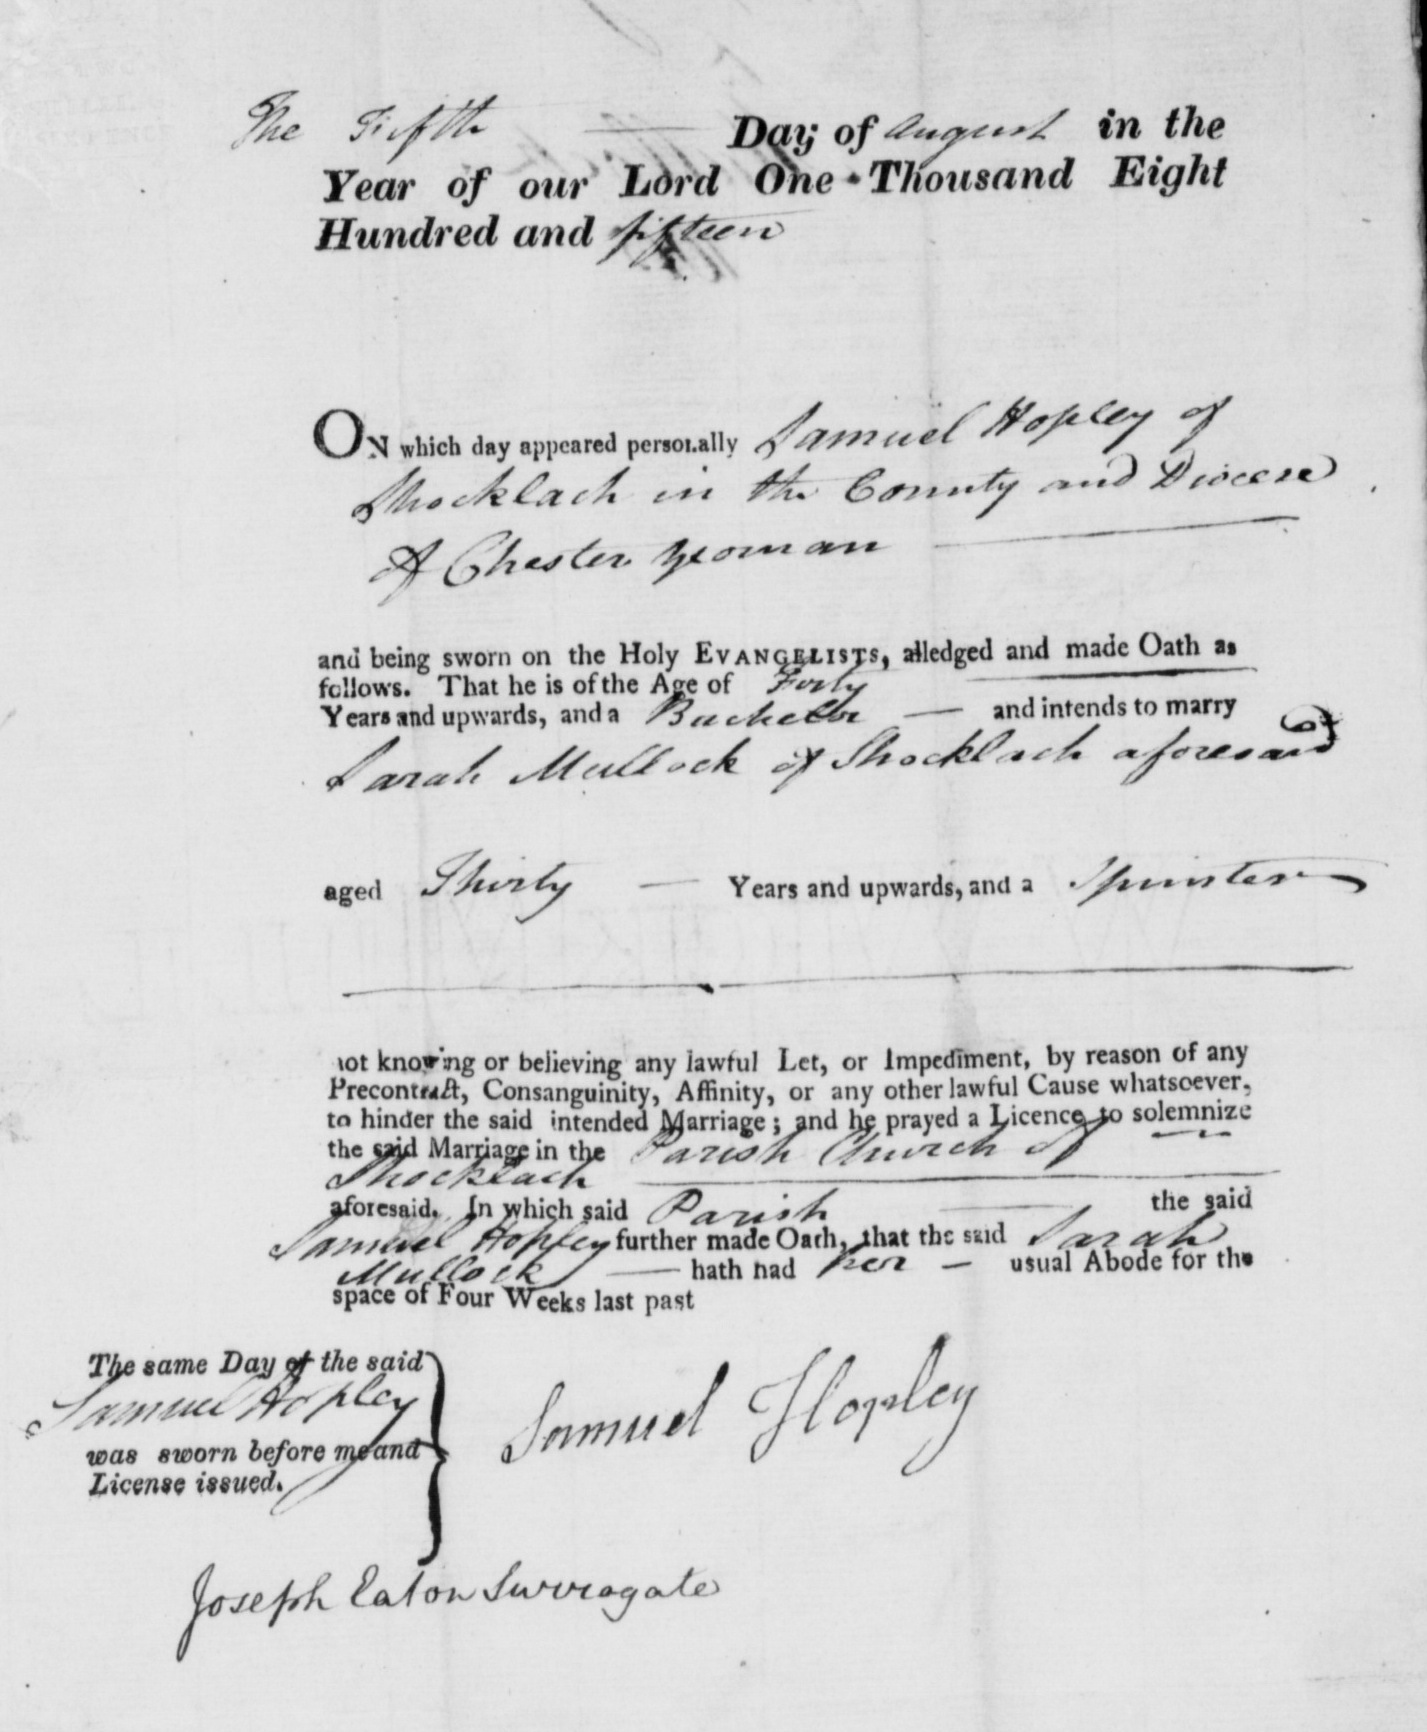 The Fifth Day of August in the
Year of our Lord One Thousand Eight
Hundred and fifteen
ON which day appeared personally Samuel Hopley of
Shocklach in the County and Diocese
of Chester yeoman
and being sworn on the Holy EVANGELISTS, alledged and made Oath as
follows. That he is of the Age of Forty
Years and upwards, and a Bachelor — and intends to marry
Sarah Mullock of Shocklach aforesaid
aged Thirty — Years and upwards, and a Spinster
not knowing or believing any lawful Let, or Impediment, by reason of any
Precontract, Consanguinity, Affinity, or any other lawful Cause whatsoever,
to hinder the said intended Marriage; and he prayed a Licence to solemnize
the said Marriage in the Parish Church of
Shocklach
aforesaid. In which said Parish the said
Samuel Hopley further made Oath, that the said Sarah
Mullock — hath had her — usual Abode for the
space of Four Weeks last past
The same Day of the said
Samuel Hopley
was sworn before me and
License issued.
Samuel Hopley
Joseph Eaton Surrogate